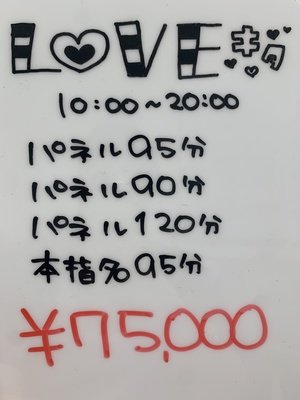 LOVE部
10:00~20:00
パネル95分
パネル90分
パネル120分
本指名95分
¥75,000